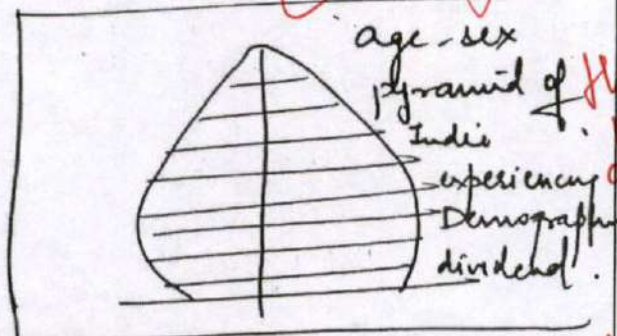 age-sex
pyramid of
India
experiencing
Demograph
dividend.